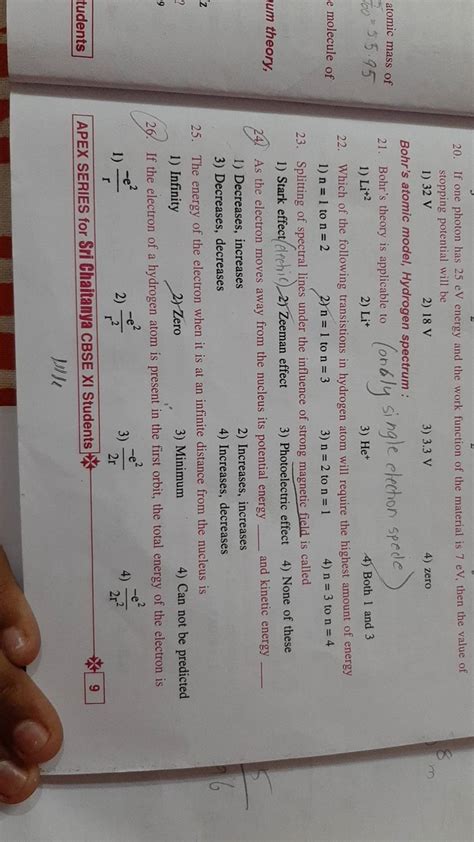 20. If one photon has 25 eV energy and the work function of the material is 7 eV, then the value of
stopping potential will be
1) 32 V 2) 18 V 3) 3.3 V 4) zero
Bohr's atomic model, Hydrogen spectrum :
21. Bohr's theory is applicable to (only single electron specie)
1) Li⁺² 2) Li⁺ 3) He⁺ 4) Both 1 and 3
22. Which of the following transitions in hydrogen atom will require the highest amount of energy
1) n = 1 to n = 2 2) n = 1 to n = 3 3) n = 2 to n = 1 4) n = 3 to n = 4
23. Splitting of spectral lines under the influence of strong magnetic field is called
1) Stark effect (electric) 2) Zeeman effect 3) Photoelectric effect 4) None of these
24. As the electron moves away from the nucleus its potential energy ____ and kinetic energy ____
1) Decreases, increases 2) Increases, increases
3) Decreases, decreases 4) Increases, decreases
25. The energy of the electron when it is at an infinite distance from the nucleus is
1) Infinity 2) Zero 3) Minimum 4) Can not be predicted
26. If the electron of a hydrogen atom is present in the first orbit, the total energy of the electron is
1) -e²/r 2) -e²/r² 3) -e²/2r 4) -e²/2r²
APEX SERIES for Sri Chaitanya CBSE XI Students 9
atomic mass of
= 55.95
e molecule of
um theory,
tudents
8
m
5